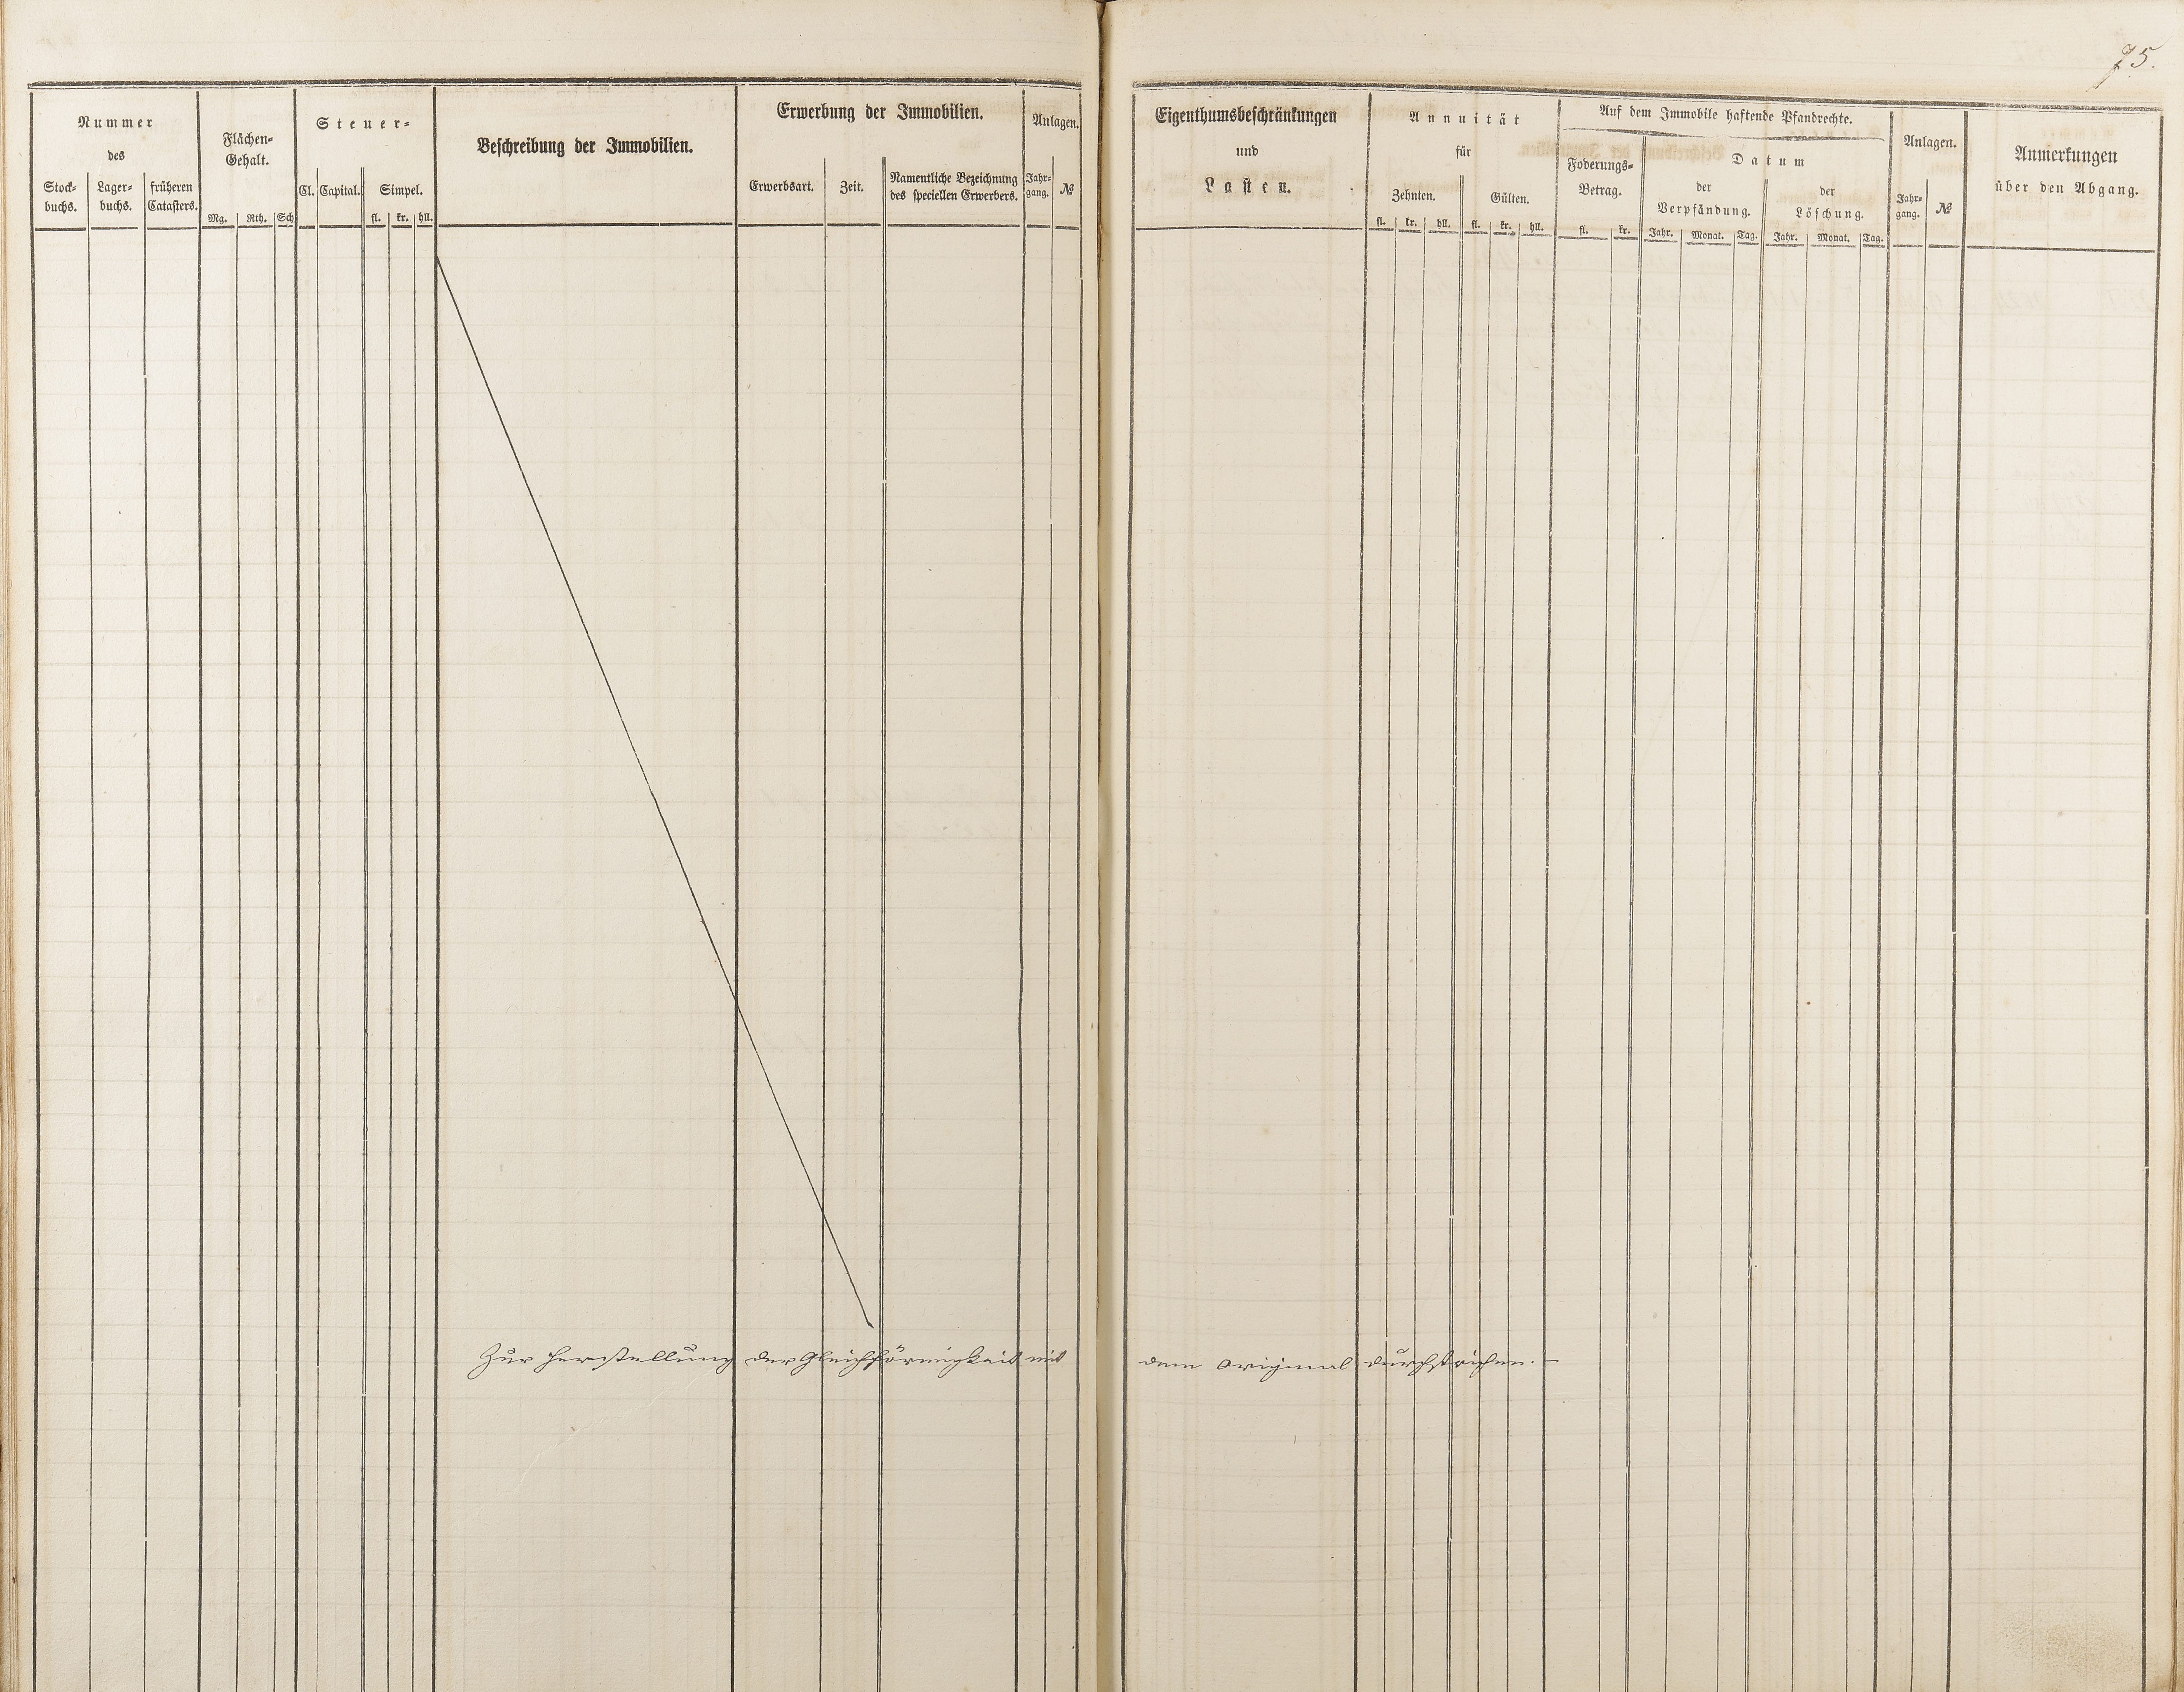 75.
Nummer
des
Stock-
buchs.
Lager-
buchs.
früheren
Catasters.
Flächen-
Gehalt.
Mg.
Rth.
Sch
Steuer-
Cl.
Capital.
Simpel.
fl.
kr.
hll.
Beschreibung der Immobilien.
Erwerbung der Immobilien.
Erwerbsart.
Zeit.
Namentliche Bezeichnung
des speciellen Erwerbers.
Anlagen.
Jahr-
gang.
№
Eigenthumsbeschränkungen
und
Lasten.
Annuität
für
Zehnten.
fl.
kr.
hll.
Gülten.
fl.
kr.
hll.
Auf dem Immobile haftende Pfandrechte.
Foderungs-
Betrag.
fl.
kr.
Datum
der
Verpfändung.
Jahr.
Monat.
Tag.
der
Löschung.
Jahr.
Monat.
Tag.
Anlagen.
Jahr-
gang.
№
Anmerkungen
über den Abgang.
Zur Herstellung der Gleichförmigkeit mit dem Original durchstrichen. –